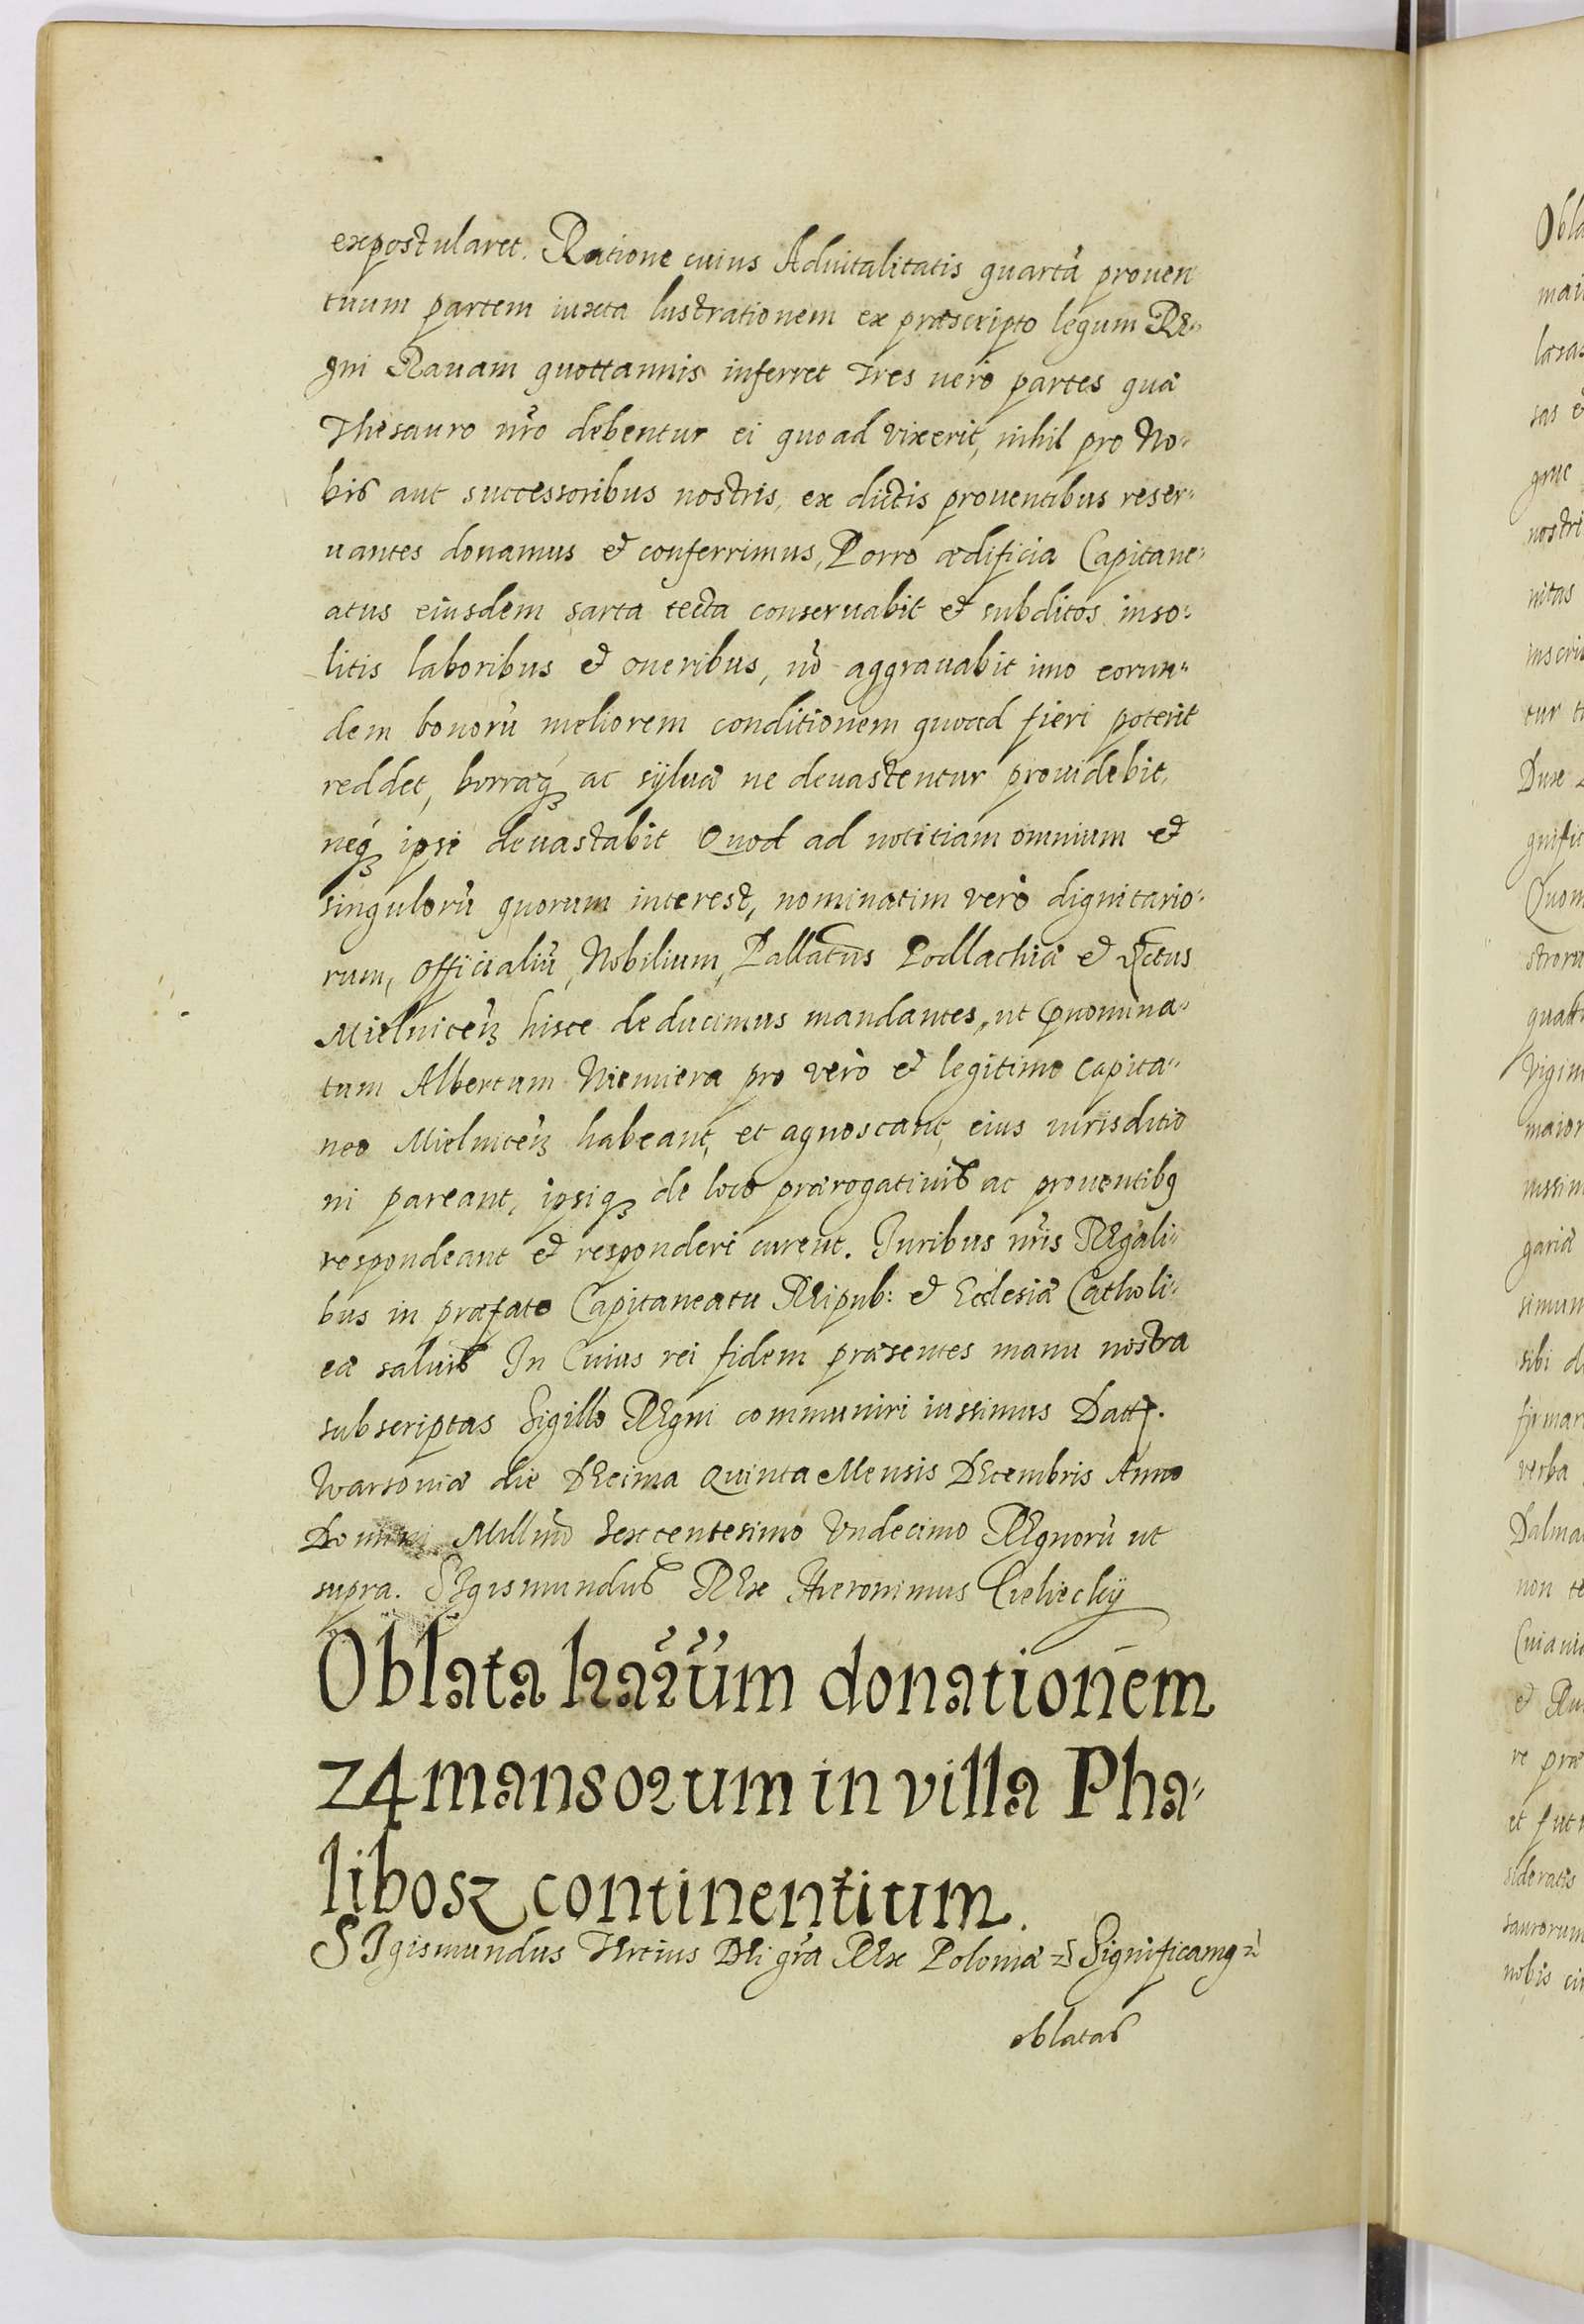 expostularet. Ratione cuius Aduitalitatis quartã prouen
tuum partem iuxta lustrationem ex præscripto legum Re-
gni Rauam quottannis inferret Tres uerò partes quæ
Thesauro nr̃o debentur ei quoad vixerit, nihil pro No-
bis aut successoribus nostris, ex dictis prouentibus reser-
uantes donamus et conferrimus, Porro ædificia Capitane-
atus eiusdem sarta tecta conseruabit et subditos inso-
litis laboribus et oneribus, nõ aggrauabit imo eorun-
dem bonorũ meliorem conditionem quoad fieri poterit
reddet, borraq ac syluæ ne deuastentur prouidebit,
neq ipse deuastabit Quod ad notitiam omnium et
singulorũ quorum interest, nominatim verò dignitario-
rum, Officialiũ, Nobilium, Pallatus Podlachiæ et
Mielniceñ hisce deducimus mandantes, ut p̃nomina-
tum Albertum Niemiera pro verò et legitimo Capita-
neo Mielniceñ habeant, et agnoscant, eius iurisditio
ni pareant, ipsiq de loco prærogatiuis ac prouentibq
respondeant et responderi curent. Iuribus nr̃is REgali-
bus in præfato Capitaneatu REipub: et Ecclesiæ Catholi-
cæ saluis In Cuius rei fidem præsentes manu nostra
subscriptas Sigillo REgni communiri iussimus Datt.
Warsouiæ die DEcima Quinta Mensis DEcembris Anno
Domini Millmo Sexcentesimo Vndecimo REgnorũ ut
supra. SIgismundus REx Hieronimus Cieliecky
Oblata lr̃arũm donationem
24 mansorum in villa Pha-
libosz continentium.
SIgismundus TErtius DEi grã REx Poloniæ Significamq
oblatas
Obla
mai
læras
sas et
grue
nostri
nitas
inscri
tur t
Dux
gnific
Quon
stroru
quatt
Vigin
maior
iussim
gariæ
simum
sibi d
firmar
verba
Dalma
non te
Cuiaui
et Ru
re præ
et fut
sideratis
saurorum
nobis ci